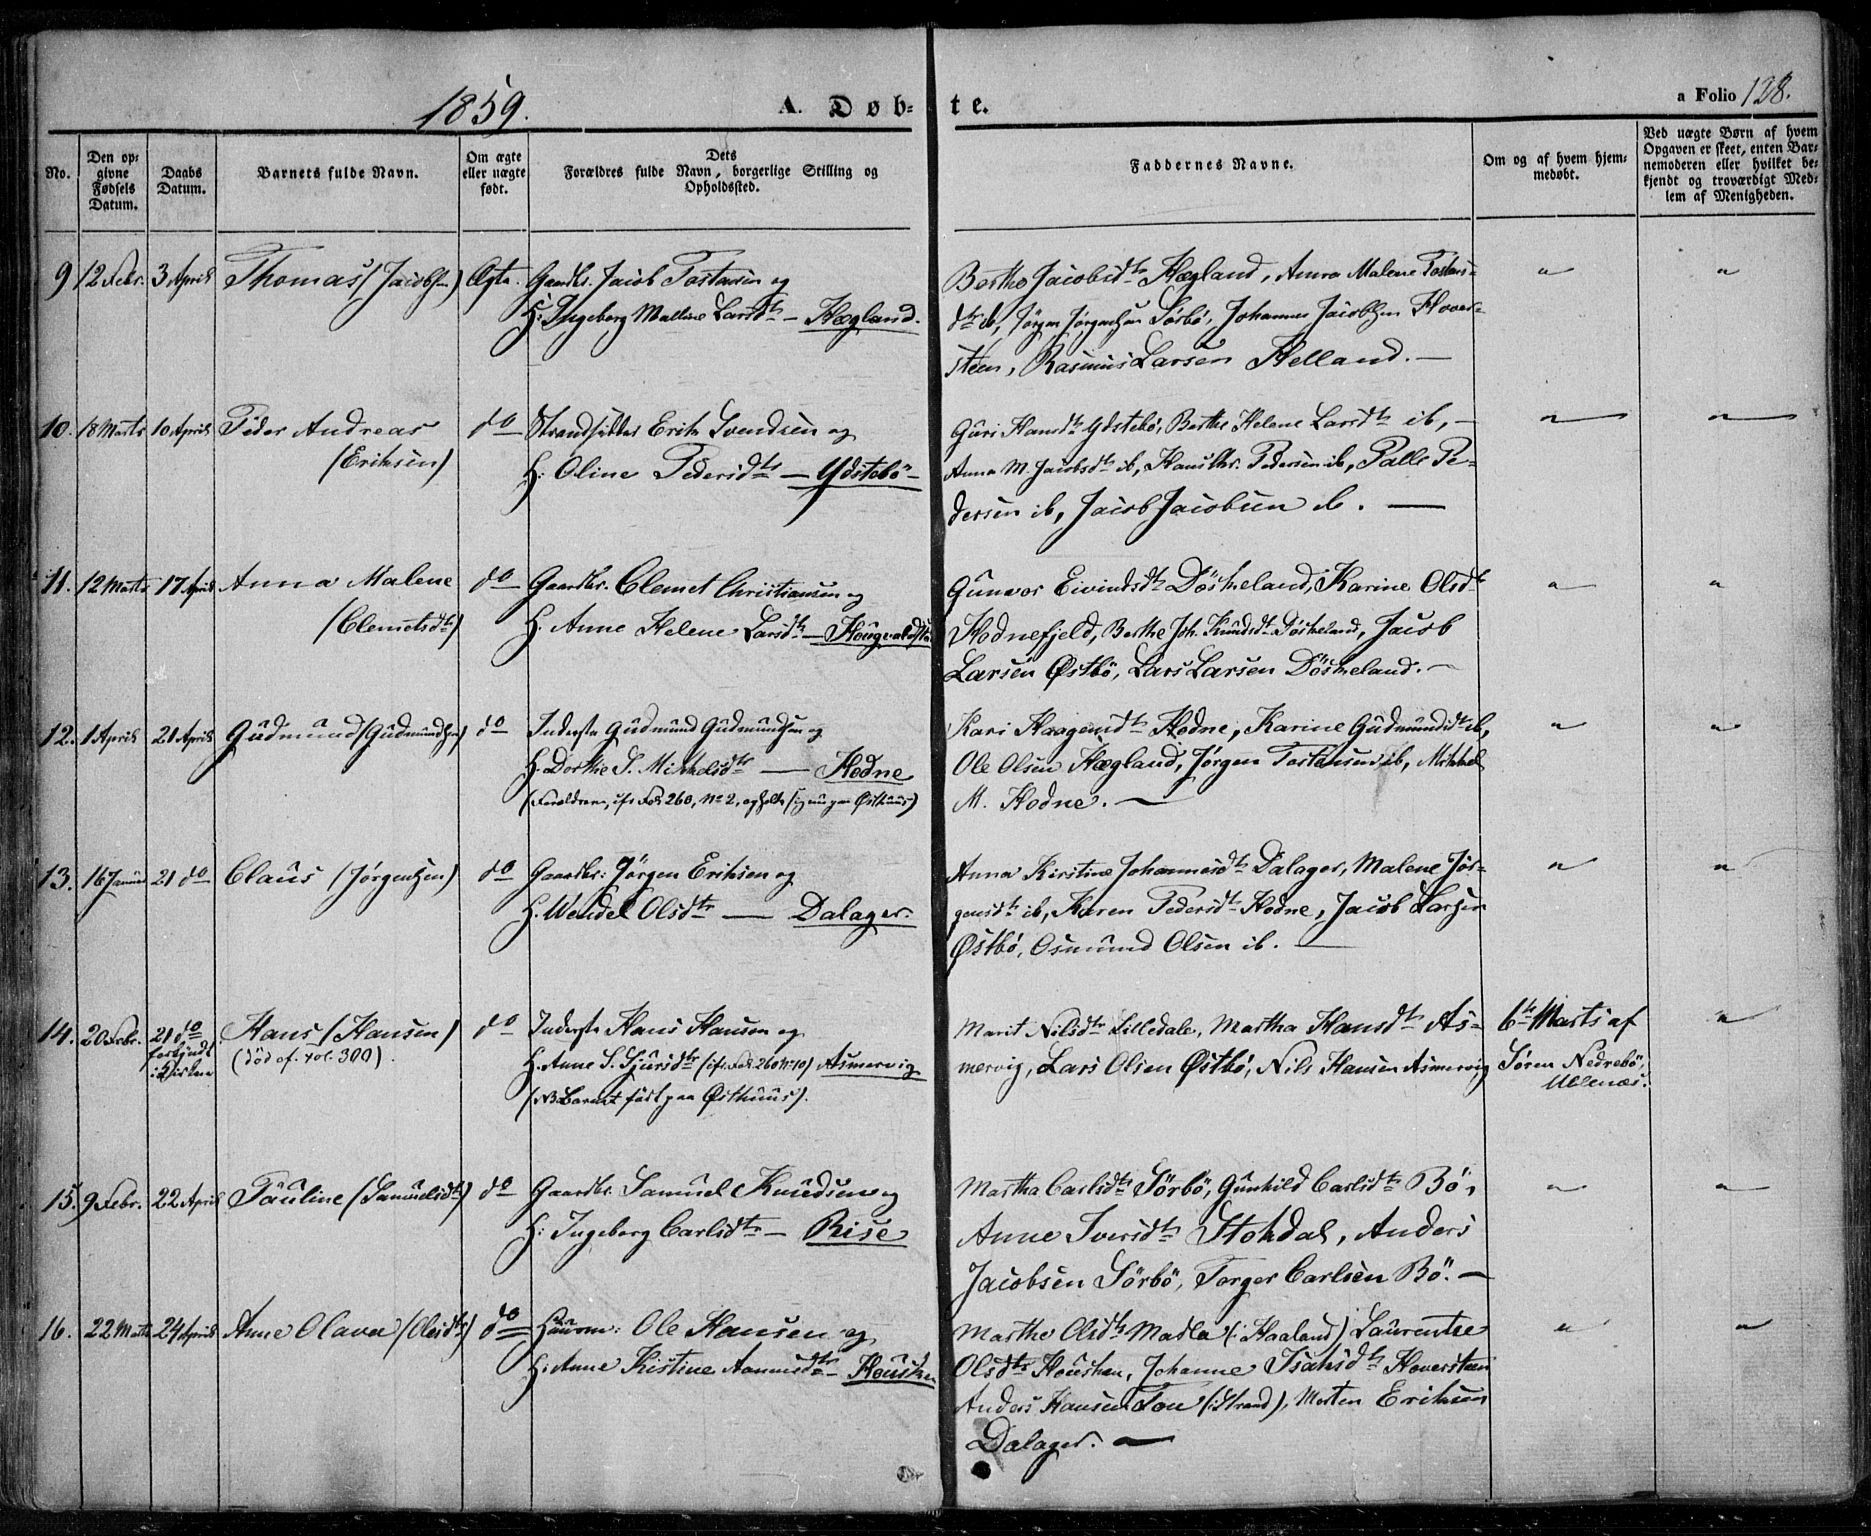 1859.
A. Døbte.
a Folio 128.
No.
Den opgivne Fødsels Datum.
Daabs Datum.
Barnets fulde Navn.
Om ægte eller uægte født.
Dets Forældres fulde Navn, borgerlige Stilling og Opholdssted.
Faddernes Navne.
Om og af hvem hjemmedøbt.
Ved uægte Børn af hvem Opgaven er skeet, enten Barnemoderen eller hvilket bekjendt og troværdigt Medlem af Menigheden.
9 12 Febr. 3 April Thomas (Jacobsen) Ægte. Gaardbr. Jacob Tostensen og
H: Ingeborg Malline Larsdtr — Hægland.
Berthe Jacobsdtr Hægland, Anna Malene Tostens-
dtr ib, Jørgen Jørgensen Sörbö, Johannes Jacobsen Hover-
steen, Rasmus Larsen Helland. —
10. 18 Marts 10 April Peder Andreas
(Eriksen)
do Strandsidder Erik Svendsen og
H: Oline Pedersdtr — Ydstebö —
Guri Hansdtr Ydstebö, Berthe Helene Larsdtr ib, —
Anna M. Jacobsdtr ib, Hans Chr. Pedersen ib, Palle Pe-
dersen ib, Jacob Jacobsen ib. —
11. 12 Marts 17 April Anna Malene
(Clemetsdtr)
do Gaardbr. Clemet Christiansen og
H. Anne Helene Larsdtr —
Gunvor Eivindsdtr Döskeland, Karine Olsdtr
Hodnefjeld, Berthe Joh. Knudsdtr Döskeland, Jacob
Larsen Østbö, Lars Larsen Döskeland. —
12. 1 April 21 April Gudmund (Gudmundsen) do Inderste Gudmund Gudmundsen og
H. Dorthe S. Mikkelsdtr — Hodne
(Forældrene, cfr Fol 260, No 2, opholde sig nu paa Østhuus)
Kari Haagensdtr Hodne, Karine Gudmundsdtr ib,
Ole Olsen Hægland, Jørgen Tostensen ib, Mikkel
M. Hodne. —
13. 16 Januar 21 do Claus (Jørgensen) do Gaardbr: Jörgen Eriksen og
H. Wendel Olsdtr — Dalager.
Anna Kirstine Johannesdtr Dalager, Malene Jør-
gensdtr ib, Karen Pedersdtr Hodne, Jacob Larsen
Østbö, Osmund Olsen ib. —
14. 20 Febr. 21 do
forkyndt
i Kirken
Hans (Hansen)
(død cf. fol. 300).
do Inderste Hans Hansen og
H. Anne S. Sjursdtr (cfr. Fol 260 No 10) Asmervig
(NB Barnet født paa Østhuus).
Marit Nilsdtr Lilledale, Martha Hansdtr As-
mervig, Lars Olsen Østbö, Nils Hansen Asmervig
6te Marts af
Sören Nedrebö,
15. 9 Febr. 22 April Pauline (Samuelsdtr) do Gaardbr. Samuel Knudsen og
H: Ingeborg Carlsdtr — Rise
Martha Carlsdtr Sörbö, Gunhild Carlsdtr Bö,
Anne Iversdtr Stokdal, Anders
Jacobsen Sörbö, Torger Carlsen Bö. —
16. 22 Marts 24 April Anne Olava (Olesdtr) do Huusm: Ole Hansen og
H: Anne Kistine Aanensdtr — Housken
Marthe Olsdtr Madla (: Haaland) Laurentse
Olsdtr Housken, Johanne Isaksdtr Hoversteen
Anders Hansen Tou (: Strand), Morten Eriksen
Dalager. —